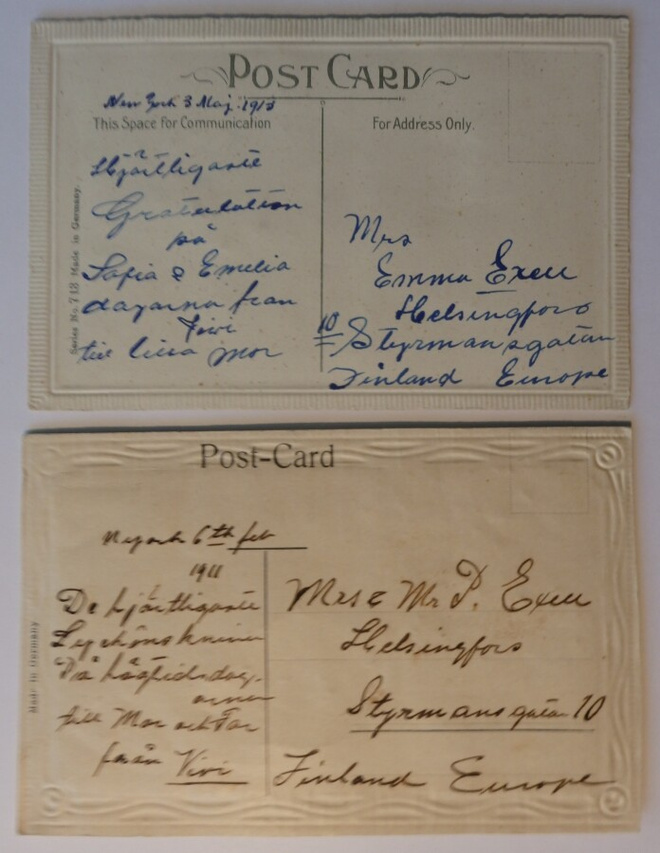 POST CARD
New York 3 Maj. 1913
This Space for Communication
For Address Only.
Hjärtligaste
Gratulation
på
Sofia & Emelia
dagarna från
Vivi
till lilla mor
Mrs
Emma Exell
Helsingfors
10 Styrmansgatan
Finland Europe
Series No. 718 Made in Germany.
Post-Card
6th feb
1911
De hjärtligaste
Lyckönskninar
På högtidsdag-
arnen
till Mor och Far
från Vivi
Mrs & Mr P. Exell
Helsingfors
Styrmansgatan 10
Finland Europe
Made in Germany